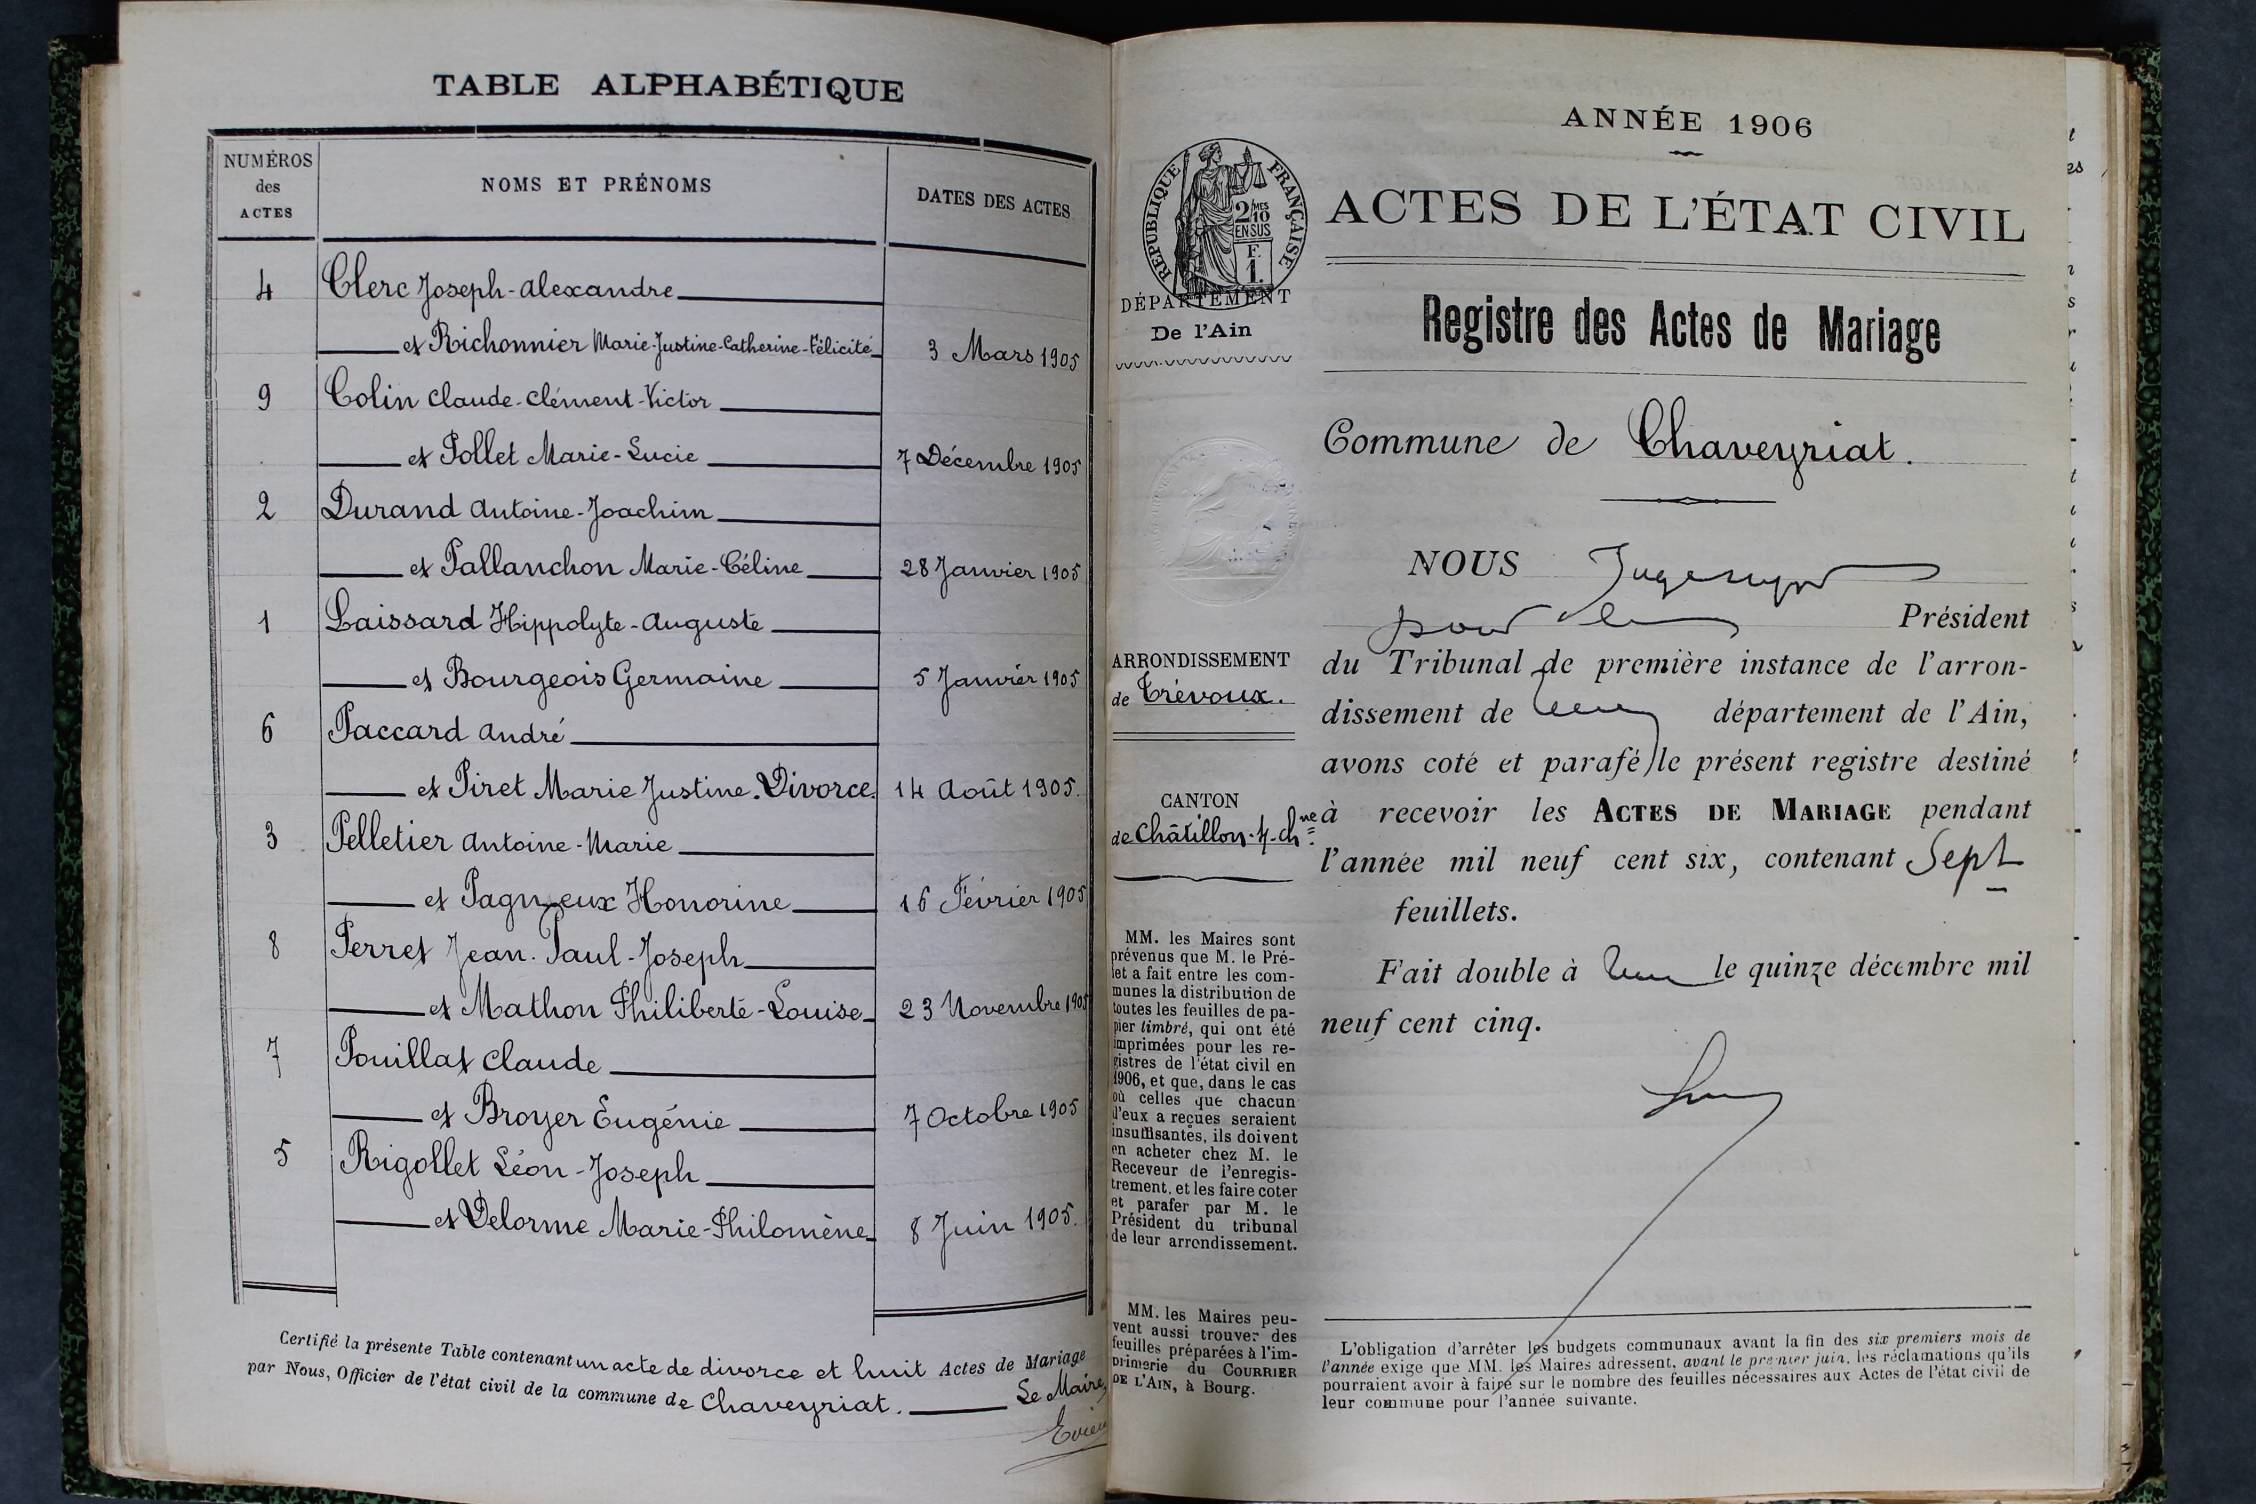 TABLE ALPHABÉTIQUE
NUMÉROS des ACTES
NOMS ET PRÉNOMS
DATES DES ACTES
4 Clerc Joseph-Alexandre
et Richonnier Marie-Justine-Catherine-Félicité 3 Mars 1905
9 Colin Claude-Clément-Victor
et Pollet Marie-Lucie 7 Décembre 1905
2 Durand Antoine-Joachim
et Pallanchon Marie-Céline 28 Janvier 1905
1 Laissard Hippolyte-Auguste
et Bourgeois Germaine 5 Janvier 1905
6 Paccard André
et Piret Marie Justine. Divorce. 14 Août 1905.
3 Pelletier Antoine-Marie
et Pagneux Honorine 16 Février 1905
8 Perret Jean-Paul-Joseph
et Mathon Philiberte-Louise 23 Novembre 1905
7 Pouillat Claude
et Broyer Eugénie 7 Octobre 1905
5 Rigollet Léon-Joseph
et Delorme Marie-Philomène 8 Juin 1905.
Certifié la présente Table contenant un acte de divorce et huit Actes de Mariage
par Nous, Officier de l'état civil de la commune de Chaveyriat.
Le Maire,
ANNÉE 1906
RÉPUBLIQUE FRANÇAISE
2/10MES
EN SUS
F.
1.
ACTES DE L'ÉTAT CIVIL
DÉPARTEMENT
De l'Ain
Registre des Actes de Mariage
Commune de Chaveyriat.
ARRONDISSEMENT
de Trévoux.
CANTON
de Châtillon-s-Chne
MM. les Maires sont
prévenus que M. le Pré-
fet a fait entre les com-
munes la distribution de
toutes les feuilles de pa-
pier timbré, qui ont été
imprimées pour les re-
gistres de l'état civil en
1906, et que, dans le cas
où celles que chacun
d'eux a reçues seraient
insuffisantes, ils doivent
en acheter chez M. le
Receveur de l'enregis-
trement, et les faire coter
et parafer par M. le
Président du tribunal
de leur arrondissement.
MM. les Maires peu-
vent aussi trouver des
feuilles préparées à l'im-
primerie du COURRIER
DE L'AIN, à Bourg.
NOUS
Président
du Tribunal de première instance de l'arron-
dissement de département de l'Ain,
avons coté et parafé le présent registre destiné
à recevoir les ACTES DE MARIAGE pendant
l'année mil neuf cent six, contenant Sept
feuillets.
Fait double à le quinze décembre mil
neuf cent cinq.
L'obligation d'arrêter les budgets communaux avant la fin des six premiers mois de
l'année exige que MM. les Maires adressent, avant le premier juin, les réclamations qu'ils
pourraient avoir à faire sur le nombre des feuilles nécessaires aux Actes de l'état civil de
leur commune pour l'année suivante.